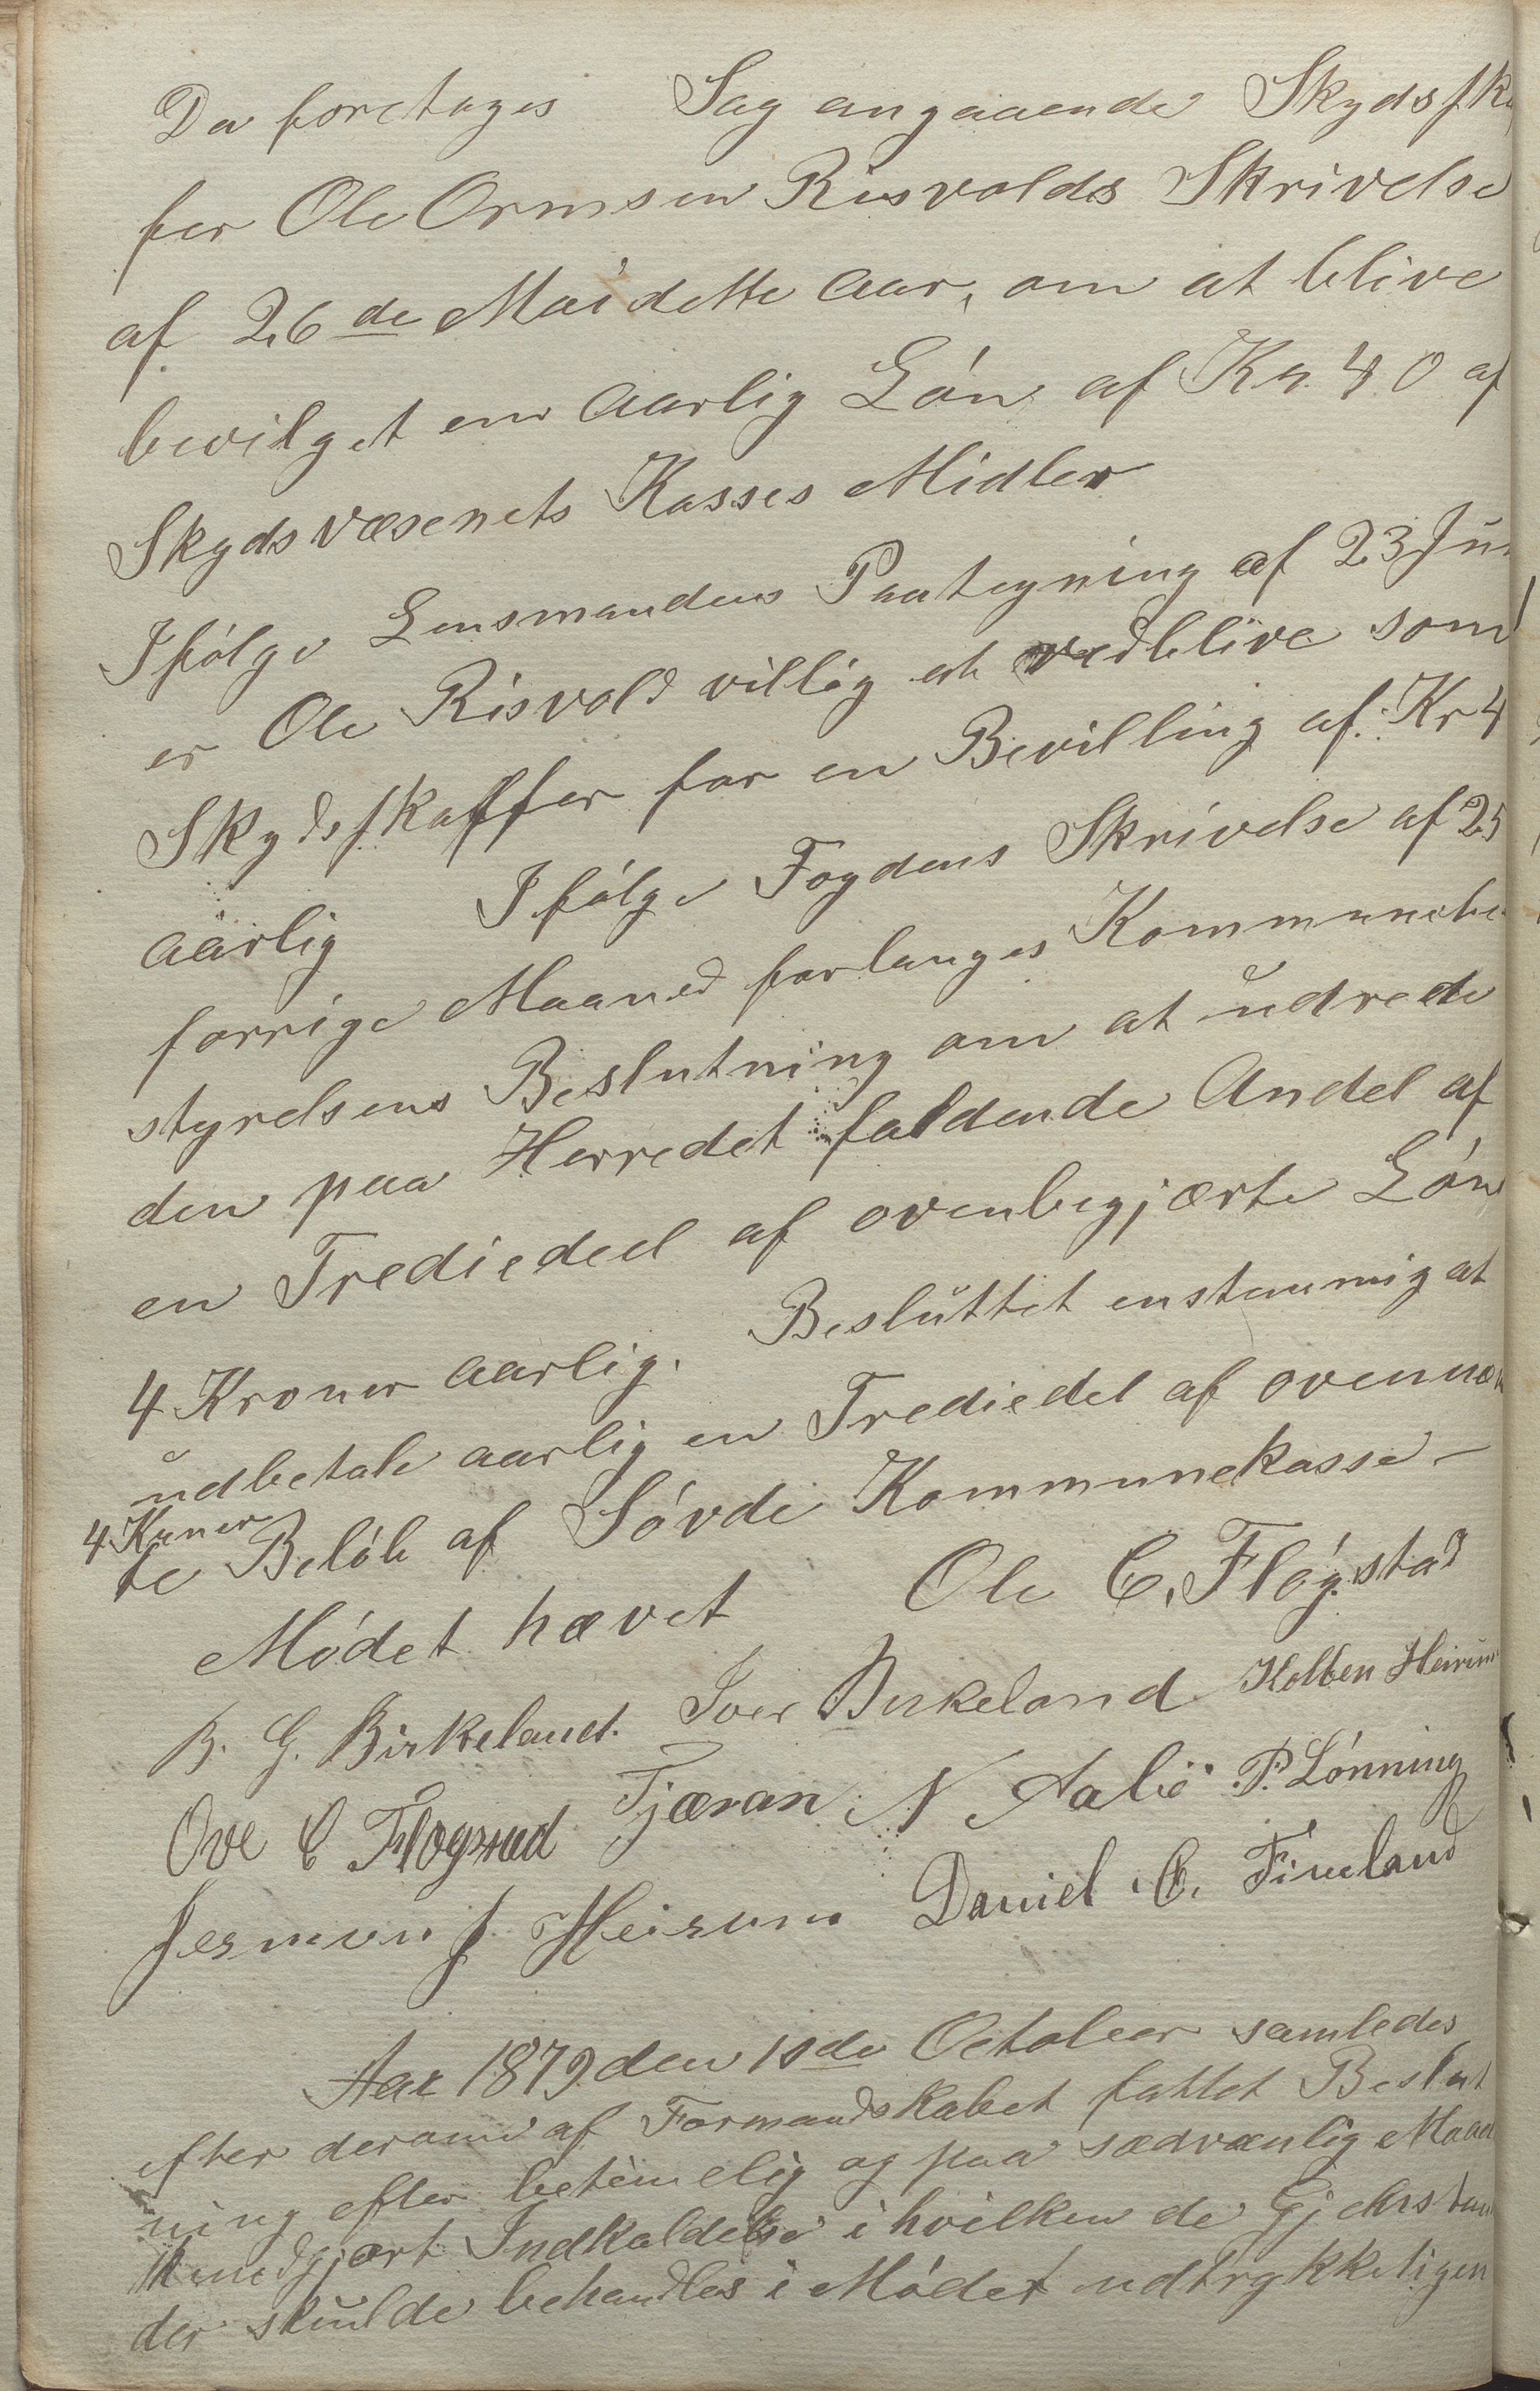 Da foretages Sag angaaende Skydsska
fer Ole Ormsen Risvolds Skrivelse
af 26de Mai dette Aar, om at blive
bevilget en aarlig Løn af Kr. 40 af
Skydsvæsenets Kasses Midler
Ifølge Lensmandens Paategning af 23 Jun
er Ole Risvold villig at vedblive som
Skydsskaffer for en Bevilling af Kr 4
aarlig Ifølge Fogdens Skrivelse af 25
forrige Maaned forlanges Kommunebe
styrelsens Beslutning om at udrede
den paa Herredet faldende Andel af
en Trediedeel af ovenbegjærte Løn
4 Kroner aarlig. Besluttet enstemmig at
udbetale aarlig en Trediedel af ovennæn
4 Kroner
te Beløb af Søvde Kommunekasse
Mødet hævet Ole C. Fløgstad
B. G. Birkeland. Iver Birkeland Kolben Heirum
Ove C Fløgstad Tjæran N Aabø P. Lønning
Jermun J Heirum Daniel C. Fineland
Aar 1879 den 10de October samledes
efter derom af Formandskabet fattet Beslut
ning efter betimelig og paa sædvanlig Maade
kundgjort Indkaldelse i hvilken de Gjenstan
der skulde behandles i Mødet udtrykkeligen